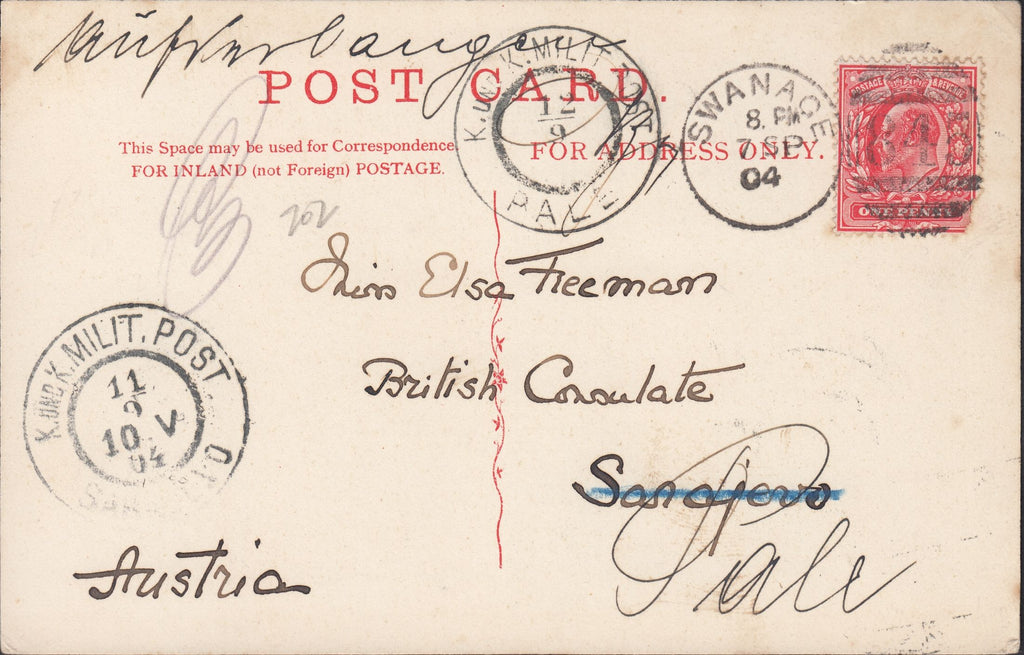 Auf Verlangen
POST CARD.
This Space may be used for Correspondence
FOR INLAND (not Foreign) POSTAGE.
FOR ADDRESS ONLY.
K. UND K. MILIT. POST
12
9
PALE
SWANAGE
8. PM
7 SP
04
POSTAGE & REVENUE
ONE PENNY
202
Miss Elsa Freeman
British Consulate
Sarajevo
Pale
K. UND K. MILIT. POST
11
9
10 V
04
Austria